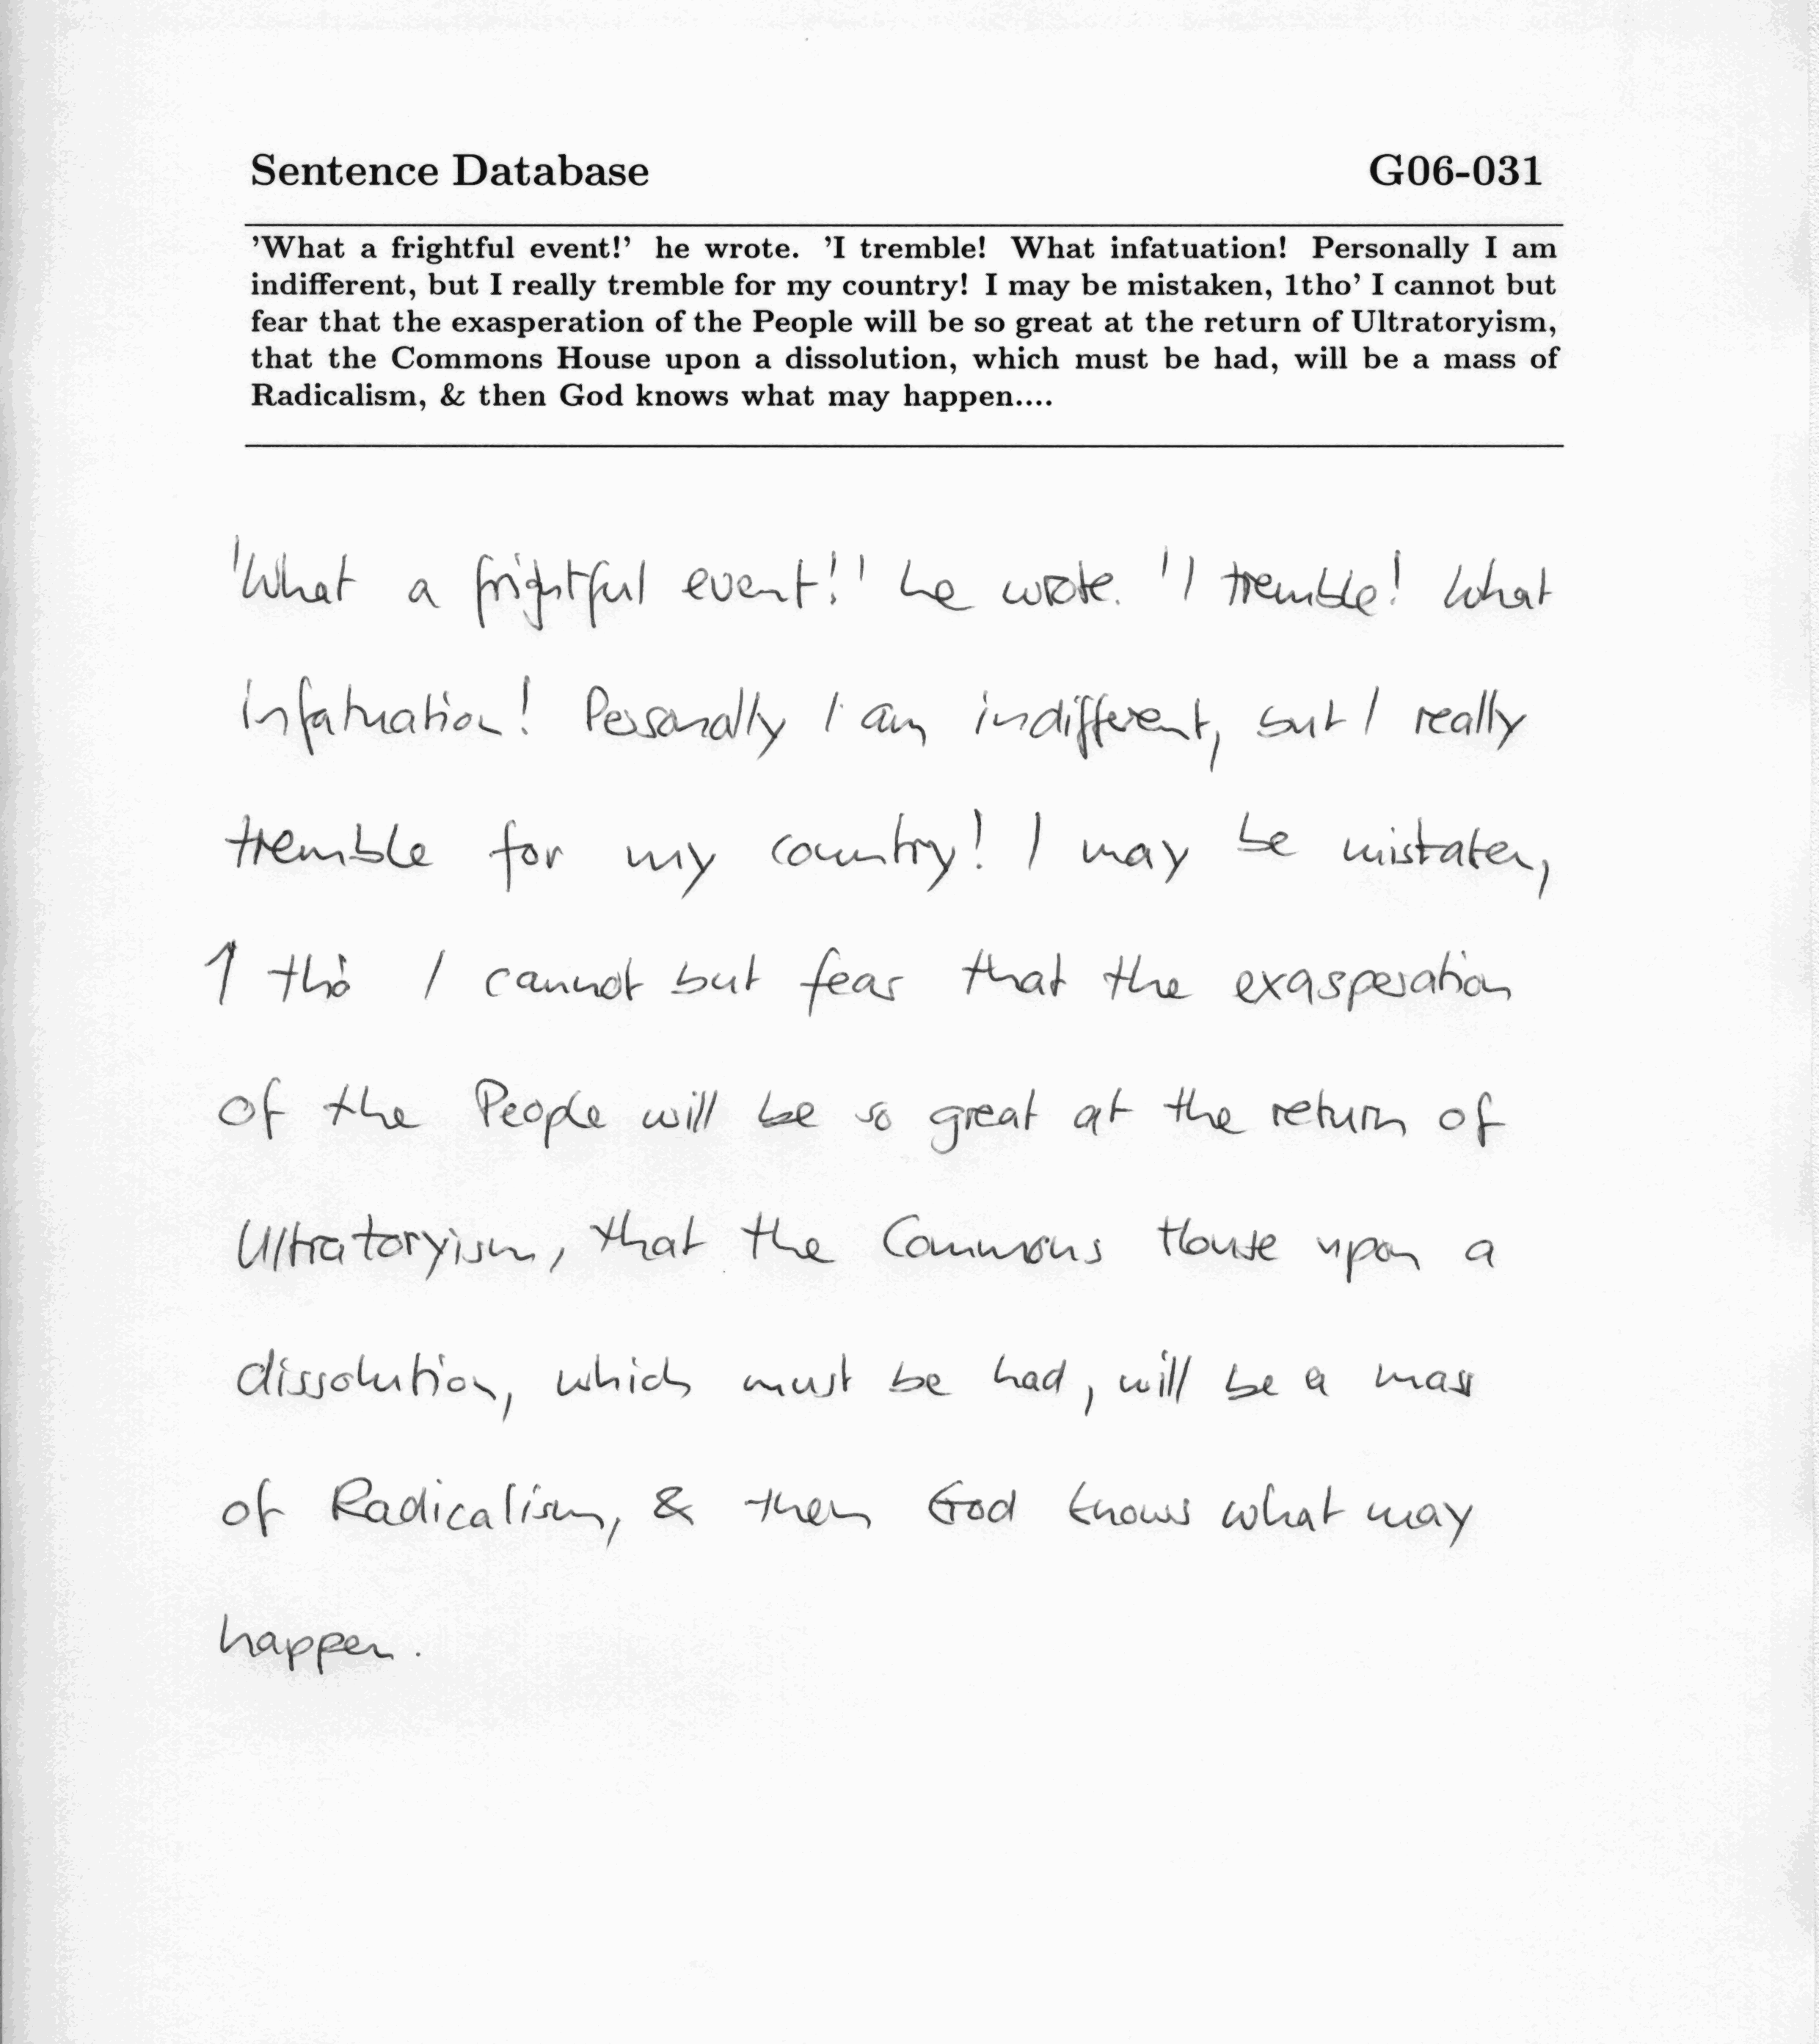 Sentence Database G06-031
'What a frightful event!' he wrote. 'I tremble! What infatuation! Personally I am
indifferent, but I really tremble for my country! I may be mistaken, 1tho' I cannot but
fear that the exasperation of the People will be so great at the return of Ultratoryism,
that the Commons House upon a dissolution, which must be had, will be a mass of
Radicalism, & then God knows what may happen....
'What a frightful event!' he wrote. 'I tremble! What
infatuation! Personally I am indifferent, but I really
tremble for my country! I may be mistaken,
1 tho' I cannot but fear that the exasperation
of the People will be so great at the return of
Ultratoryism, that the Commons House upon a
dissolution, which must be had, will be a mass
of Radicalism, & then God knows what may
happen.